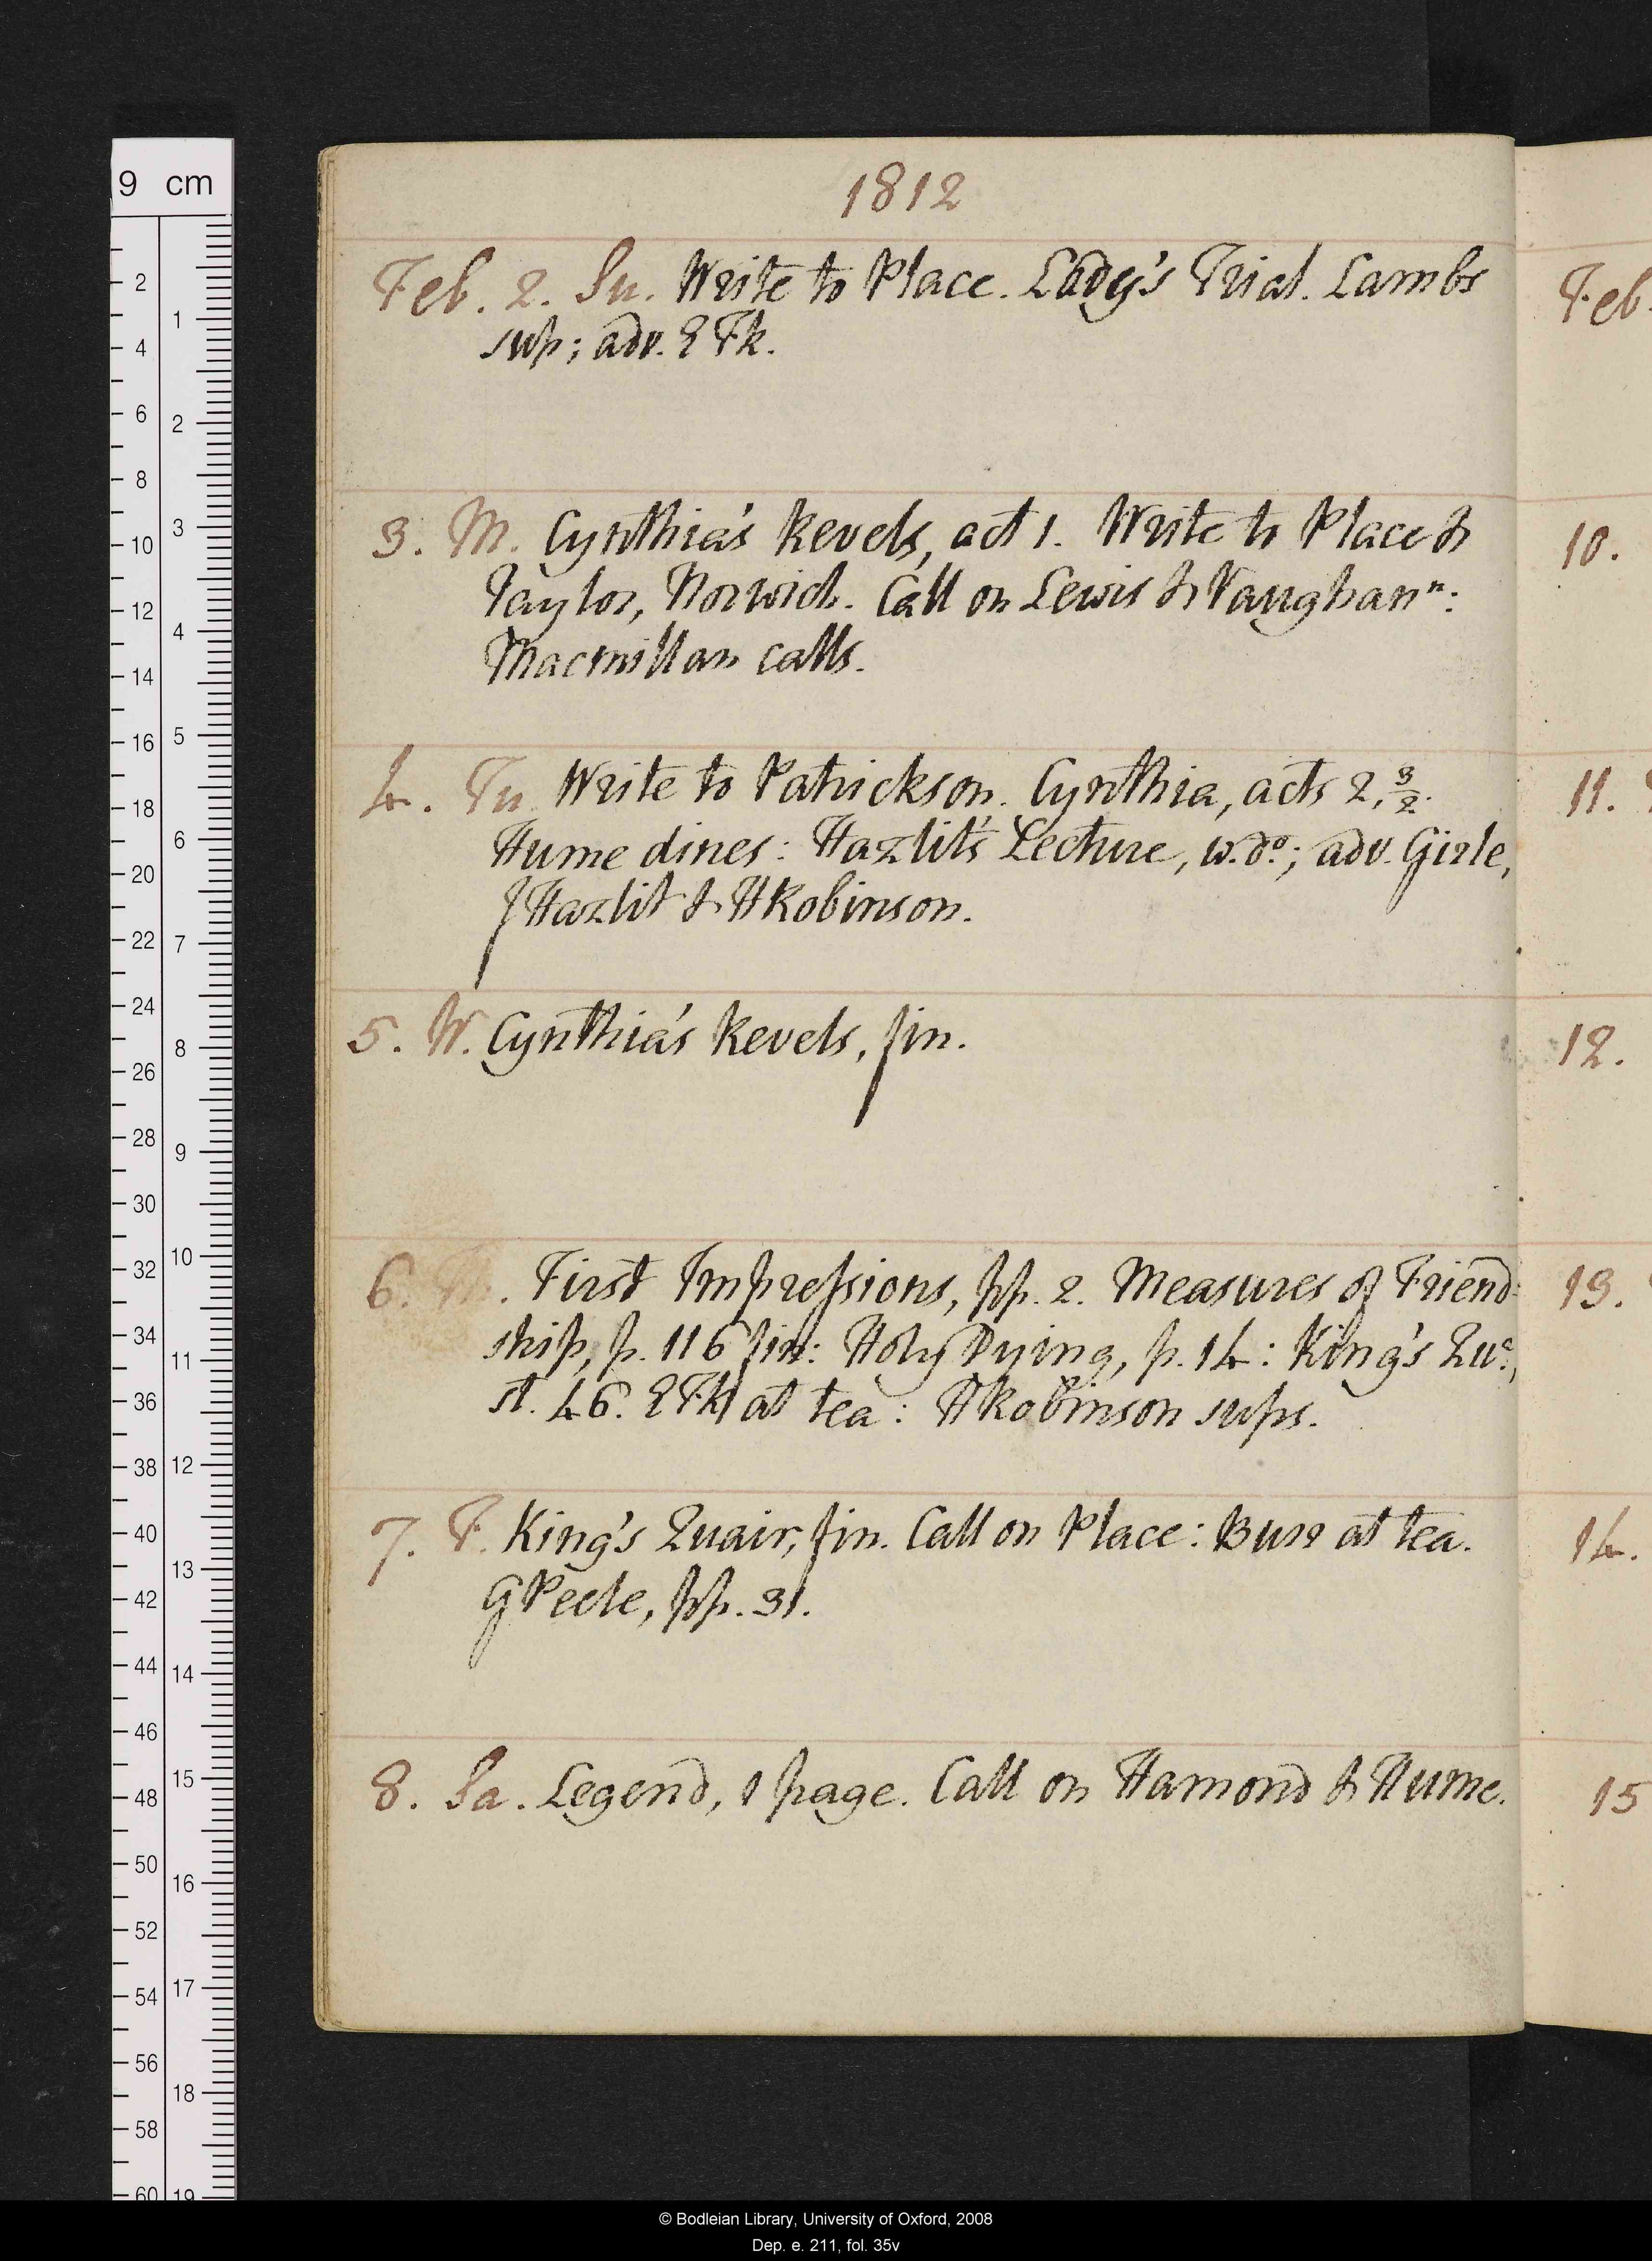 1812
Feb. 2. Su. Write to Place. Lady's Trial. Lambs
sup; adv. E Fk.
3. M. Cynthia's Revels, act 1. Write to Place &
Taylor, Norwich. Call on Lewis & Vaughan n:
Macmillan calls.
4. Tu. Write to Patrickson. Cynthia, acts 2, 3/2.
Hume dines: Hazlit's Lecture, w. do; adv. Girle,
J Hazlit & H Robinson.
5. W. Cynthia's Revels, fin.
6. Th. First Impressions, pp. 2. Measures of Friend-
ship, p. 116 fin: Holy Dying, p. 14: King's Qua,
st. 46. E Fk at tea: H Robinson sups.
7. F. King's Quair, fin. Call on Place: Burr at tea.
G Peele, pp. 31.
8. Sa. Legend, 1 page. Call on Hamond & Hume.
Feb.
10.
11.
12.
13.
14.
15
9 cm
2 4 6 8 10 12 14 16 18 20 22 24 26 28 30 32 34 36 38 40 42 44 46 48 50 52 54 56 58 60
1 2 3 4 5 6 7 8 9 10 11 12 13 14 15 16 17 18 19
© Bodleian Library, University of Oxford, 2008
Dep. e. 211, fol. 35v